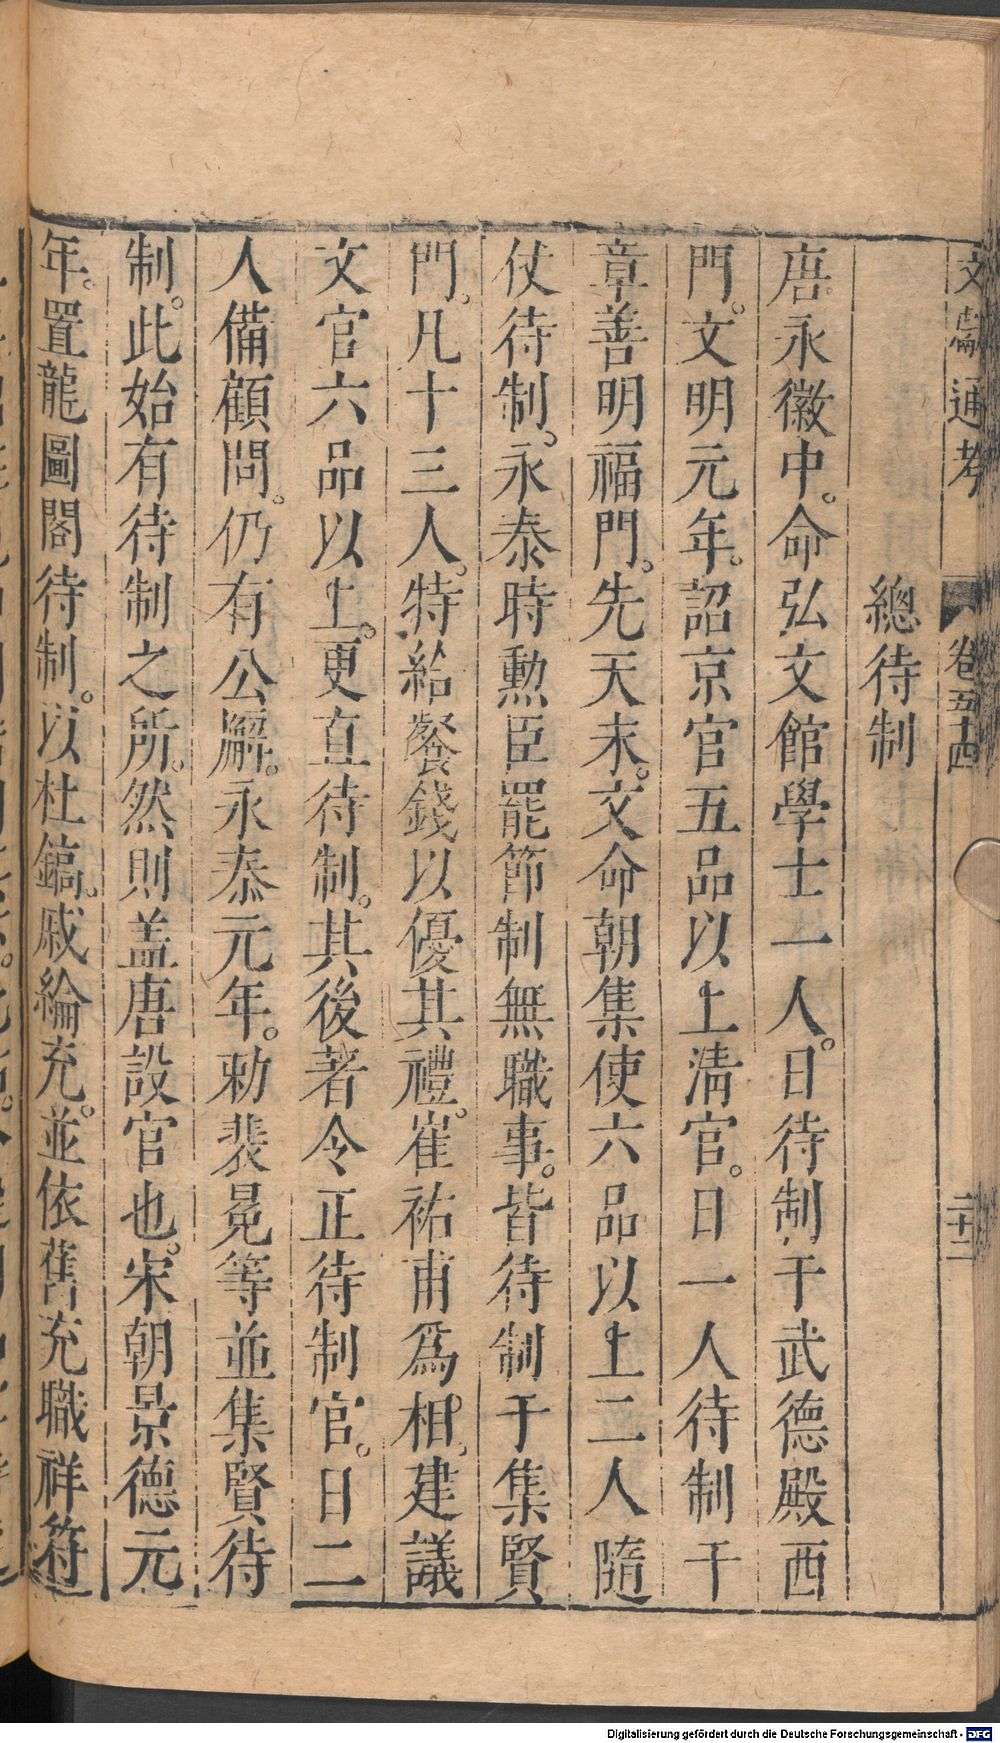 文獻通考 卷五十四 二十二
總待制
唐永徽中。命弘文館學士一人。日待制于武德殿西
門。文明元年。詔京官五品以上清官。日一人待制于
章善明福門。先天末。又命朝集使六品以上二人隨
仗待制。永泰時勲臣罷節制無職事。皆待制于集賢
門。凡十三人。特給餐錢以優其禮。崔祐甫爲相。建議
文官六品以上。更直待制。其後著令正待制官。日二
人備顧問。仍有公廨。永泰元年。勑裴冕等並集賢待
制。此始有待制之所。然則盖唐設官也。宋朝景德元
年。置龍圖閣待制。以杜鎬。戚綸充。並依舊充職祥符
Digitalisierung gefördert durch die Deutsche Forschungsgemeinschaft - DFG